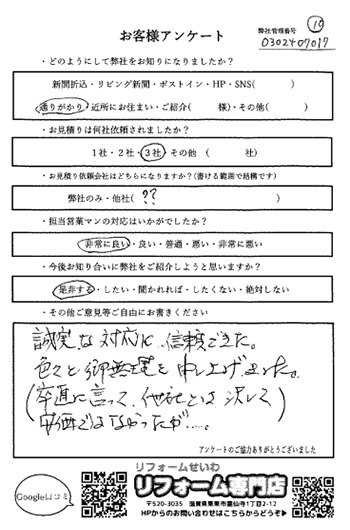 お客様アンケート
弊社管理番号
⑩
0302407017
・どのようにして弊社をお知りになりましたか？
新聞折込・リビング新聞・ポストイン・HP・SNS(　　　)
通りがかり・近所にお住まい・ご紹介(　　　様)・その他(　　　)
・お見積りは何社依頼されましたか？
1社・2社・3社・その他　(　　　社)
・お見積り依頼会社はどちらになりますか？(書ける範囲で結構です)
弊社のみ・他社(　??　)
・担当営業マンの対応はいかがでしたか？
非常に良い・良い・普通・悪い・非常に悪い
・今後お知り合いに弊社をご紹介しようと思いますか？
是非する・したい・聞かれれば・したくない・絶対しない
・その他ご意見等ご自由にお書きください
誠実な対応に、信頼できた。
色々と御無理を申し上げました。
(率直に言って、他社とは決して
安価ではなかったが……。)
アンケートのご協力ありがとうございました
Google口コミ
リフォームせいわ
リフォーム専門店
〒520-3035　滋賀県栗東市霊仙寺1丁目2-17
HPからのお問い合わせはこちらからどうぞ▶